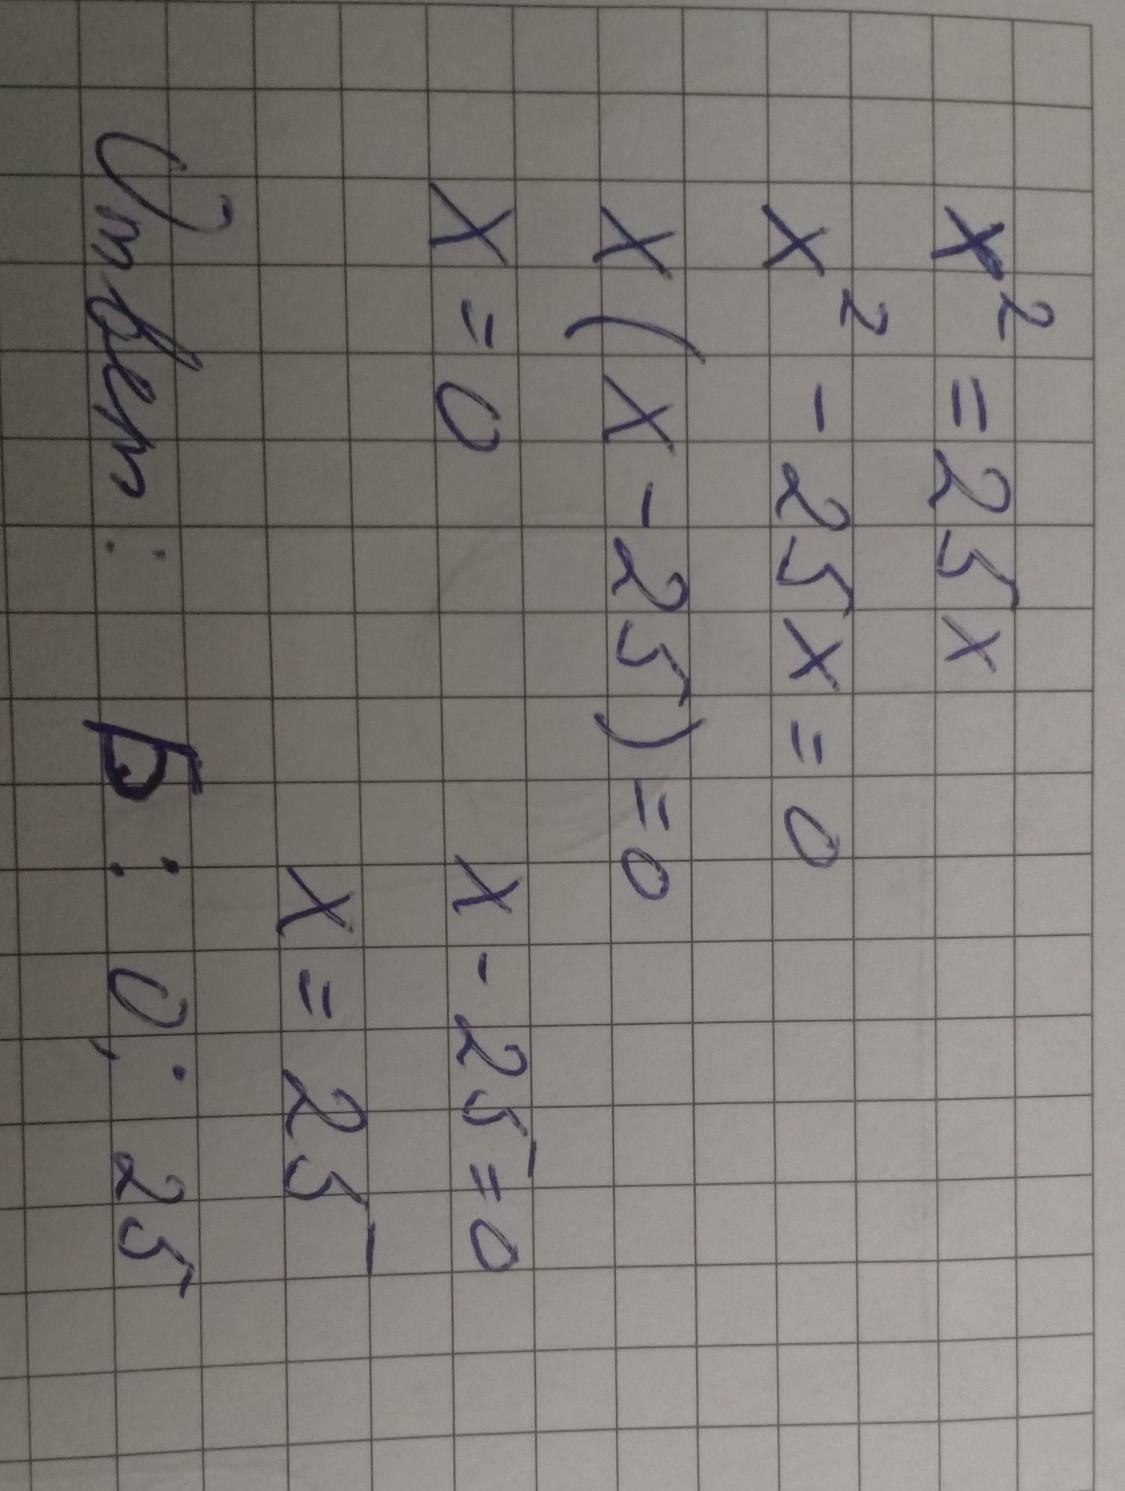 x² = 25x
x² - 25x = 0
x(x - 25) = 0
x = 0 x - 25 = 0
x = 25
Ответ: Б: 0; 25